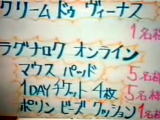 クリームドゥ ヴィーナス
1名様
ラグナロク オンライン
マウス パッド 5名様
1DAYチケット4枚 5名様
ポリン ビーズ クッション 1名様